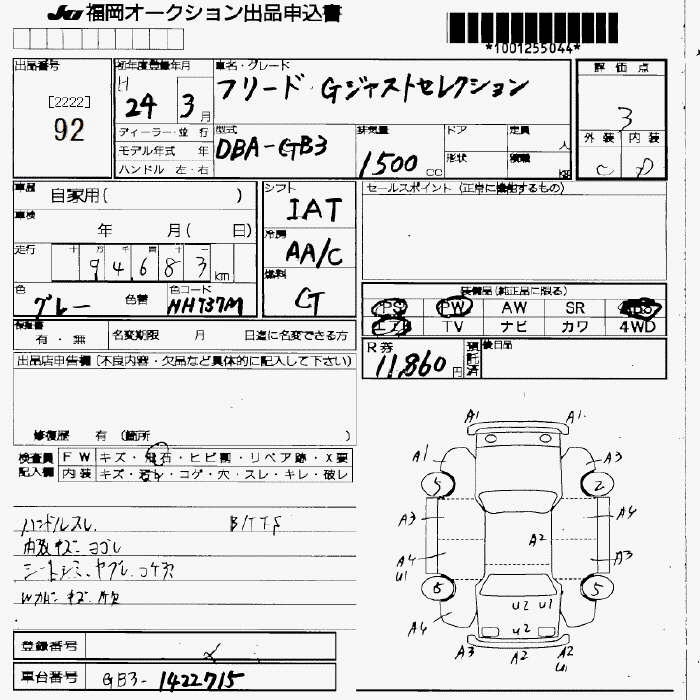 JU 福岡オークション出品申込書
*1001255044*
出品番号 初年度登録年月 車名・グレード 評価点
[2222] 92
H 24 3月
フリード・Gジャストセレクション
3
ディーラー・並行
モデル年式 年
ハンドル 左・右
型式 DBA-GB3
排気量 1500 cc
ドア 定員 人
形状 積載 kg
外装 内装
C D
車歴 自家用( )
車検 年 月( 日)
走行 十 万 千 百 十
9 4 6 8 3 km
色 グレー 色替 色コード NH737M
シフト IAT
冷房 AA/C
燃料 G
セールスポイント (正常に機能するもの)
装備品(純正品に限る)
PS PW AW SR ABS
エアB TV ナビ カワ 4WD
検査書 有・無 名変期限 月 日迄に名変できる方
R券 11,860円 預託済 後日品
出品店申告欄(不良内容・欠品など具体的に記入して下さい)
修復歴 有 (箇所 )
検査員記入欄
FW キズ・飛石・ヒビ割・リペア跡・X要
内装 キズ・汚れ・コゲ・穴・スレ・キレ・破レ
ハンドルスレ
内装キズ・ヨゴレ
シートシミ、ヤブレ、コゲ穴
A1 A1
A1 A3
5 2
A3 A4
A2
A4 A3
U1
6 5
U2 U1
U2
A4
A3 A2 A2
U1
登録番号
車台番号 GB3-1422715